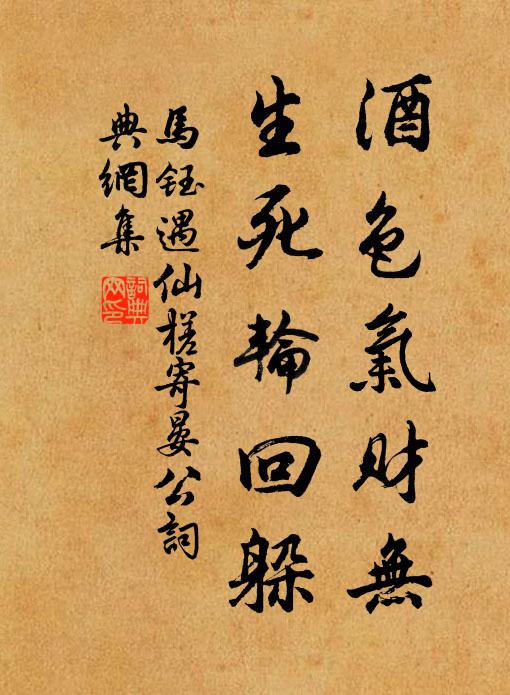 酒色氣財無
生死輪回躲
馬鈺遇仙槎寄晏公詞
典網集
詞典網印